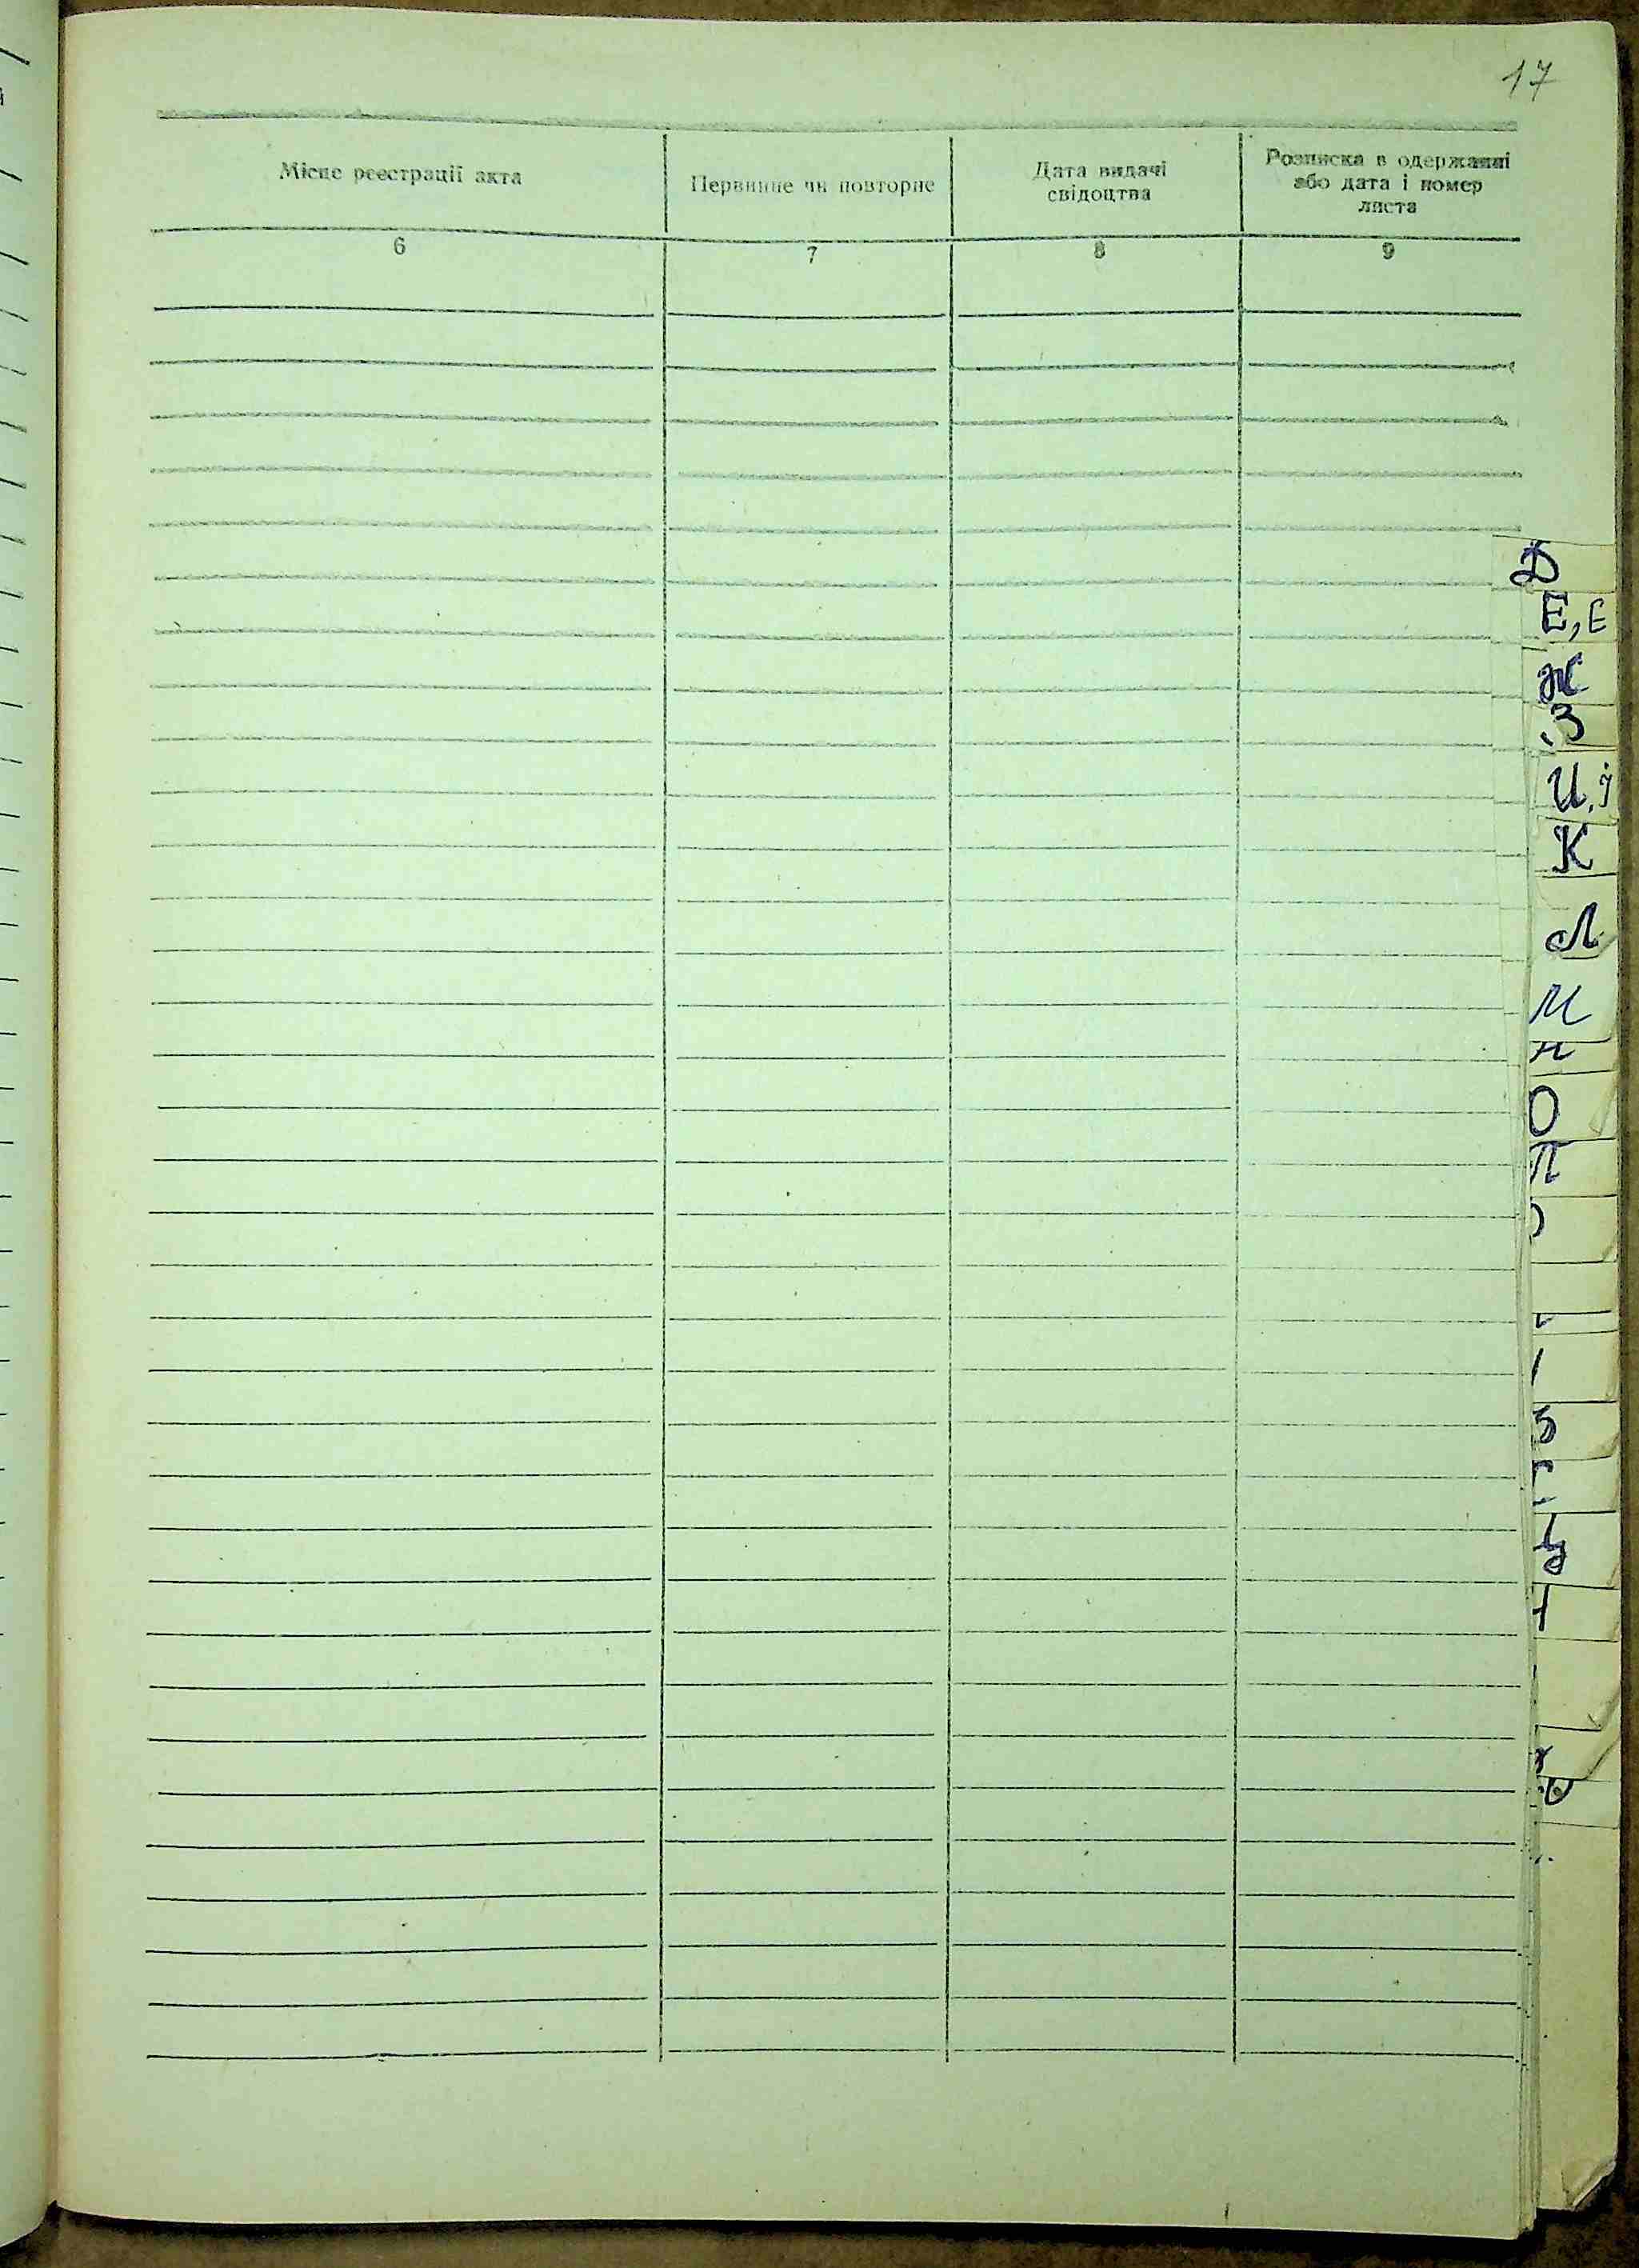 17
Місце реєстрації акта
Первинне чи повторне
Дата видачі
свідоцтва
Розписка в одержанні
або дата і номер
листа
6
7
8
9
Д
Е, Є
Ж
З
И, І
К
Л
М
Н
О
П